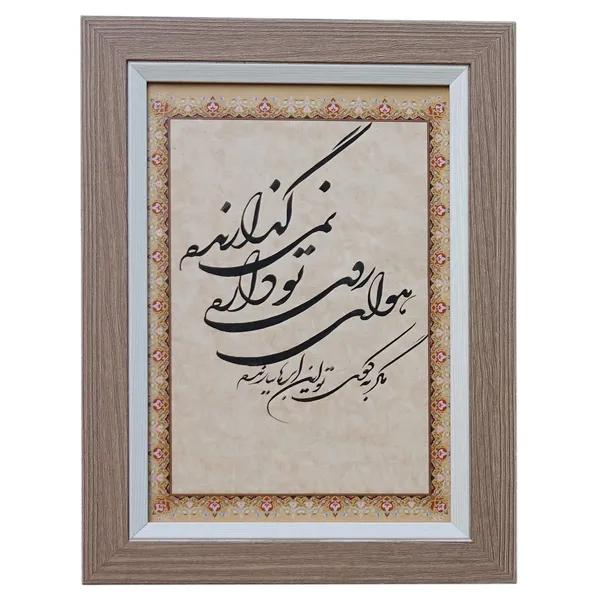 هوای روی تو دارم نمی گذارندم
مگر به کوی تو این ابرها ببارندم